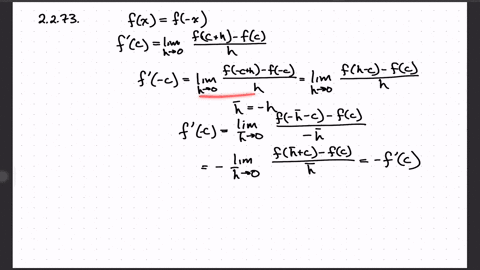 2.2.73. f(x) = f(-x)
f'(c) = lim h→0 f(c+h) - f(c) / h
f'(-c) = lim h→0 f(-c+h) - f(-c) / h = lim h→0 f(h-c) - f(c) / h
h̄ = -h
f'(-c) = lim h̄→0 f(-h̄-c) - f(c) / -h̄
= - lim h̄→0 f(h̄+c) - f(c) / h̄ = -f'(c)